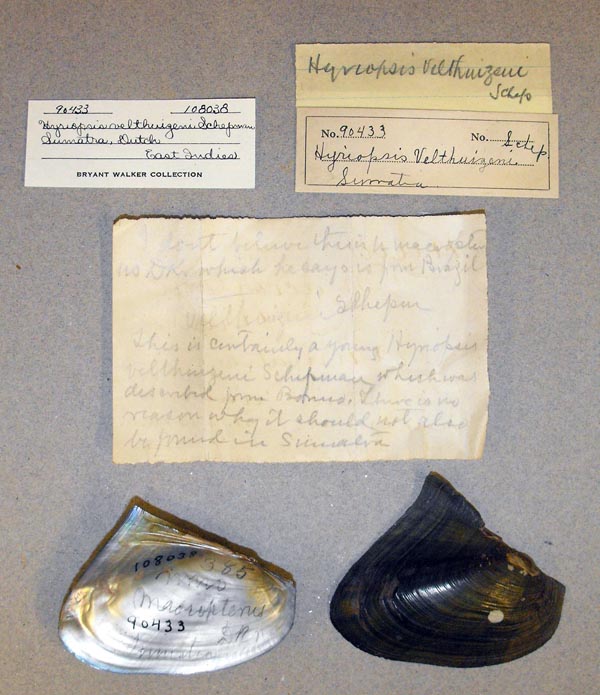 Hyriopsis Velthuizeni
Schep
90433 108038
Hyriopsis velthuizeni Schepman
Sumatra, Dutch
East Indies
BRYANT WALKER COLLECTION
No. 90433 No. Schep.
Hyriopsis Velthuizeni
Sumatra
I don't believe this is macropter
us DK. which he says is from Brazil
velthuizeni Schepm
This is certainly a young Hyriopsis
velthuizeni Schepman, which was
described from Borneo. There is no
reason why it should not also
be found in Sumatra
108038 365
Unio
macropterus
90433 DK
Sumatra